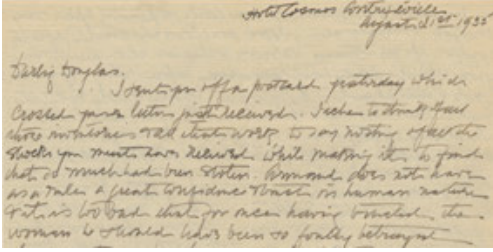 Hotel Cosmos Contrexéville
August 21st 1935
Darling Douglas.
I sent you off a postcard yesterday which
crossed your letter just received. I ache to think of all
those inventories & all that work to say nothing of all the
shocks you must have received while making it to find
that so much had been stolen. Armand does not have
as a rule a great confidence & trust in human nature
& it is too bad that for once having trusted the
woman he should have been so foully betrayed